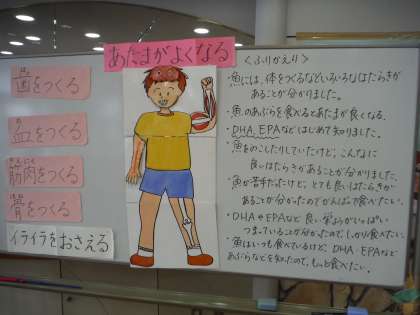 あたまがよくなる
歯をつくる
血をつくる
筋肉をつくる
骨をつくる
イライラをおさえる
＜ふりかえり＞
・魚には、体をつくるなどいろいろなはたらきが
あることが分かりました。
・魚のあぶらを食べるとあたまが良くなる。
・DHA、EPAなどはじめて知りました。
・魚をのこしたりしていたけど、こんなに
良いはたらきがあることが分かりました。
・魚が苦手だったけど、とても良いはたらきが
あることが分かったのでがんばって食べたい。
・DHAやEPAなど良い栄ようがいっぱい
つまっていることが分かったので、しっかり食べたい。
・魚はいつも食べているけど、DHA、EPAなど
あぶらなどを知ったので、もっと食べたい。